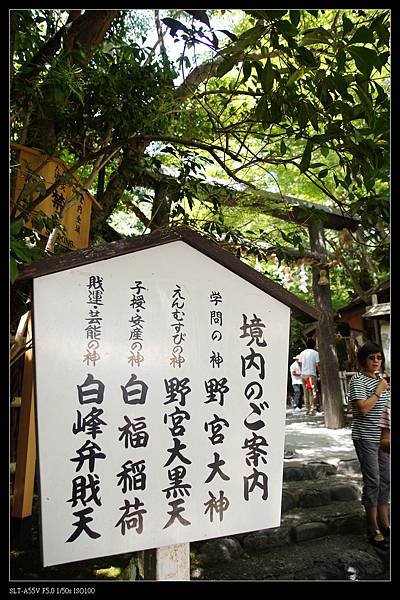 境内のご案内
学問の神 野宮大神
えんむすびの神 野宮大黒天
子授・安産の神 白福稲荷
財運・芸能の神 白峰弁財天
SLT-A55V F5.0 1/50s ISO100